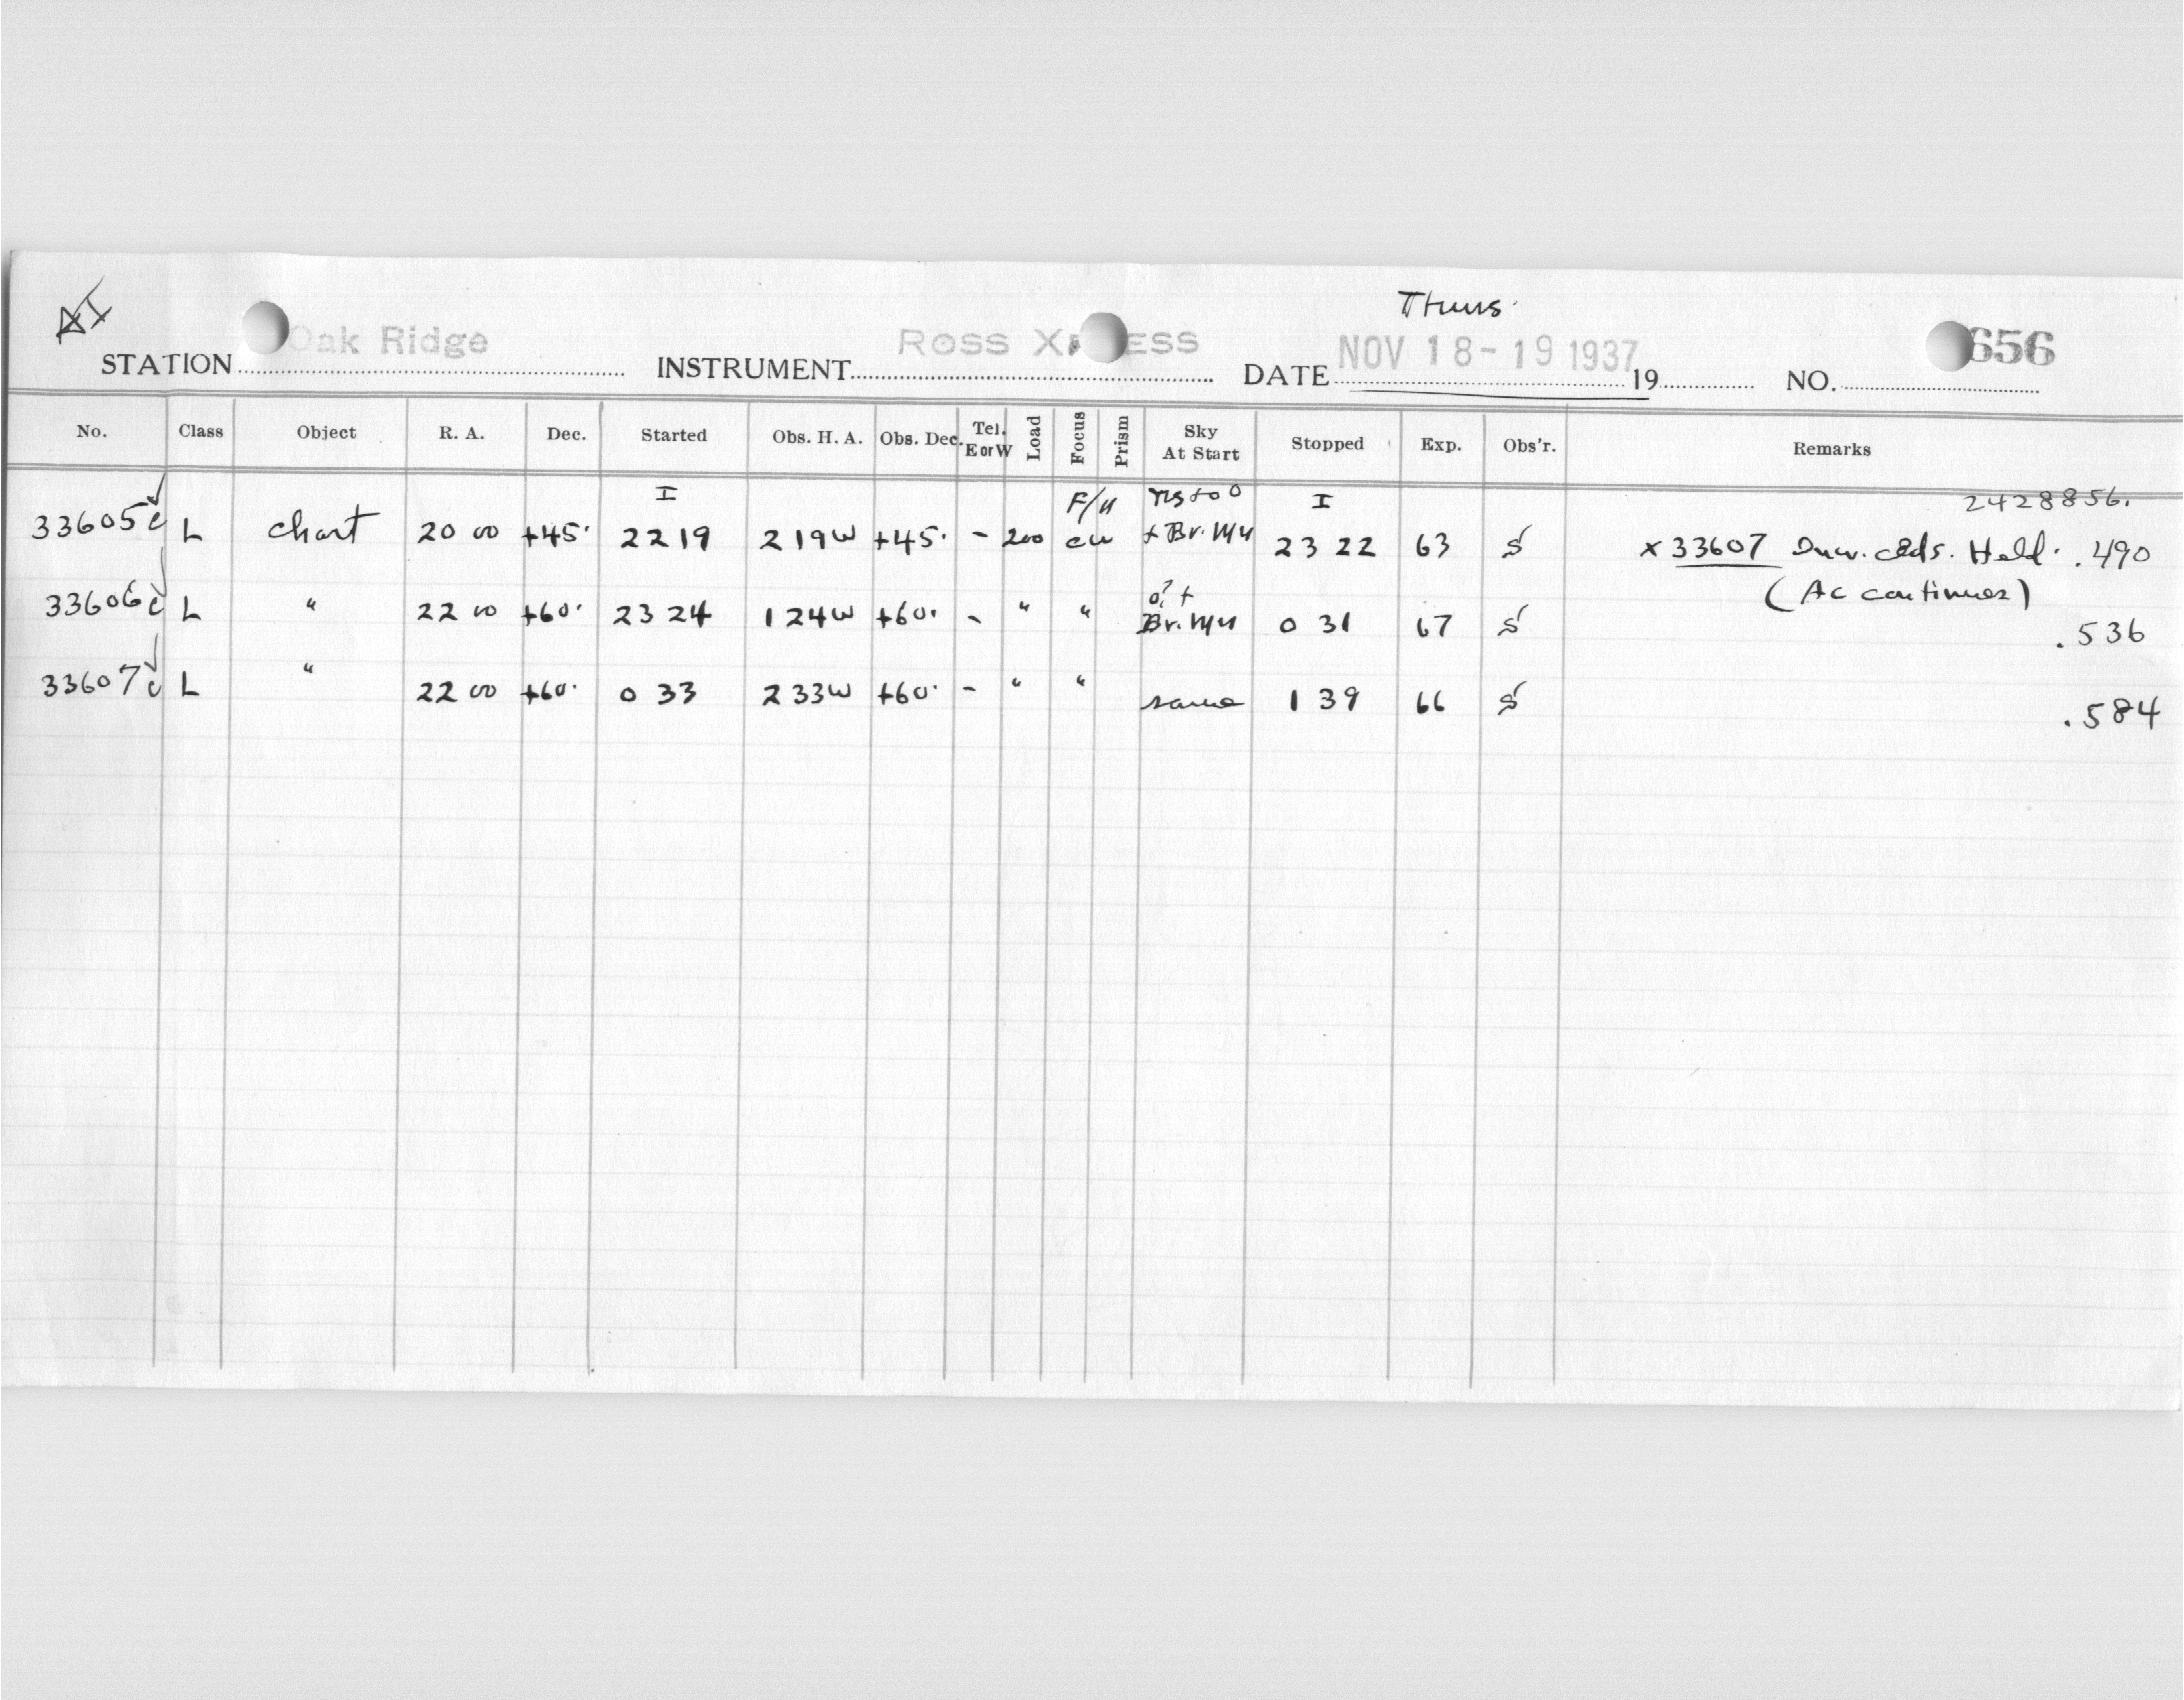 AI
Thurs.
STATION Oak Ridge INSTRUMENT Ross Xpress DATE NOV 18-19 1937 19 NO. 656
No. Class Object R. A. Dec. Started Obs. H. A. Obs. Dec. Tel. E or W Load Focus Prism Sky At Start Stopped Exp. Obs'r. Remarks
I F/11 I 2428856.
33605 c L Chart 20 00 +45° 22 19 2 19 W +45° - 200 + Br. Mn 23 22 63 S × 33607 Clds. Held. .490
(Ac continues)
33606 c L " 22 00 +60° 23 24 1 24 W +60° - " " 0? + Br. Mn 0 31 67 S .536
33607 c L " 22 00 +60° 0 33 2 33 W +60° - " " same 1 39 66 S .584